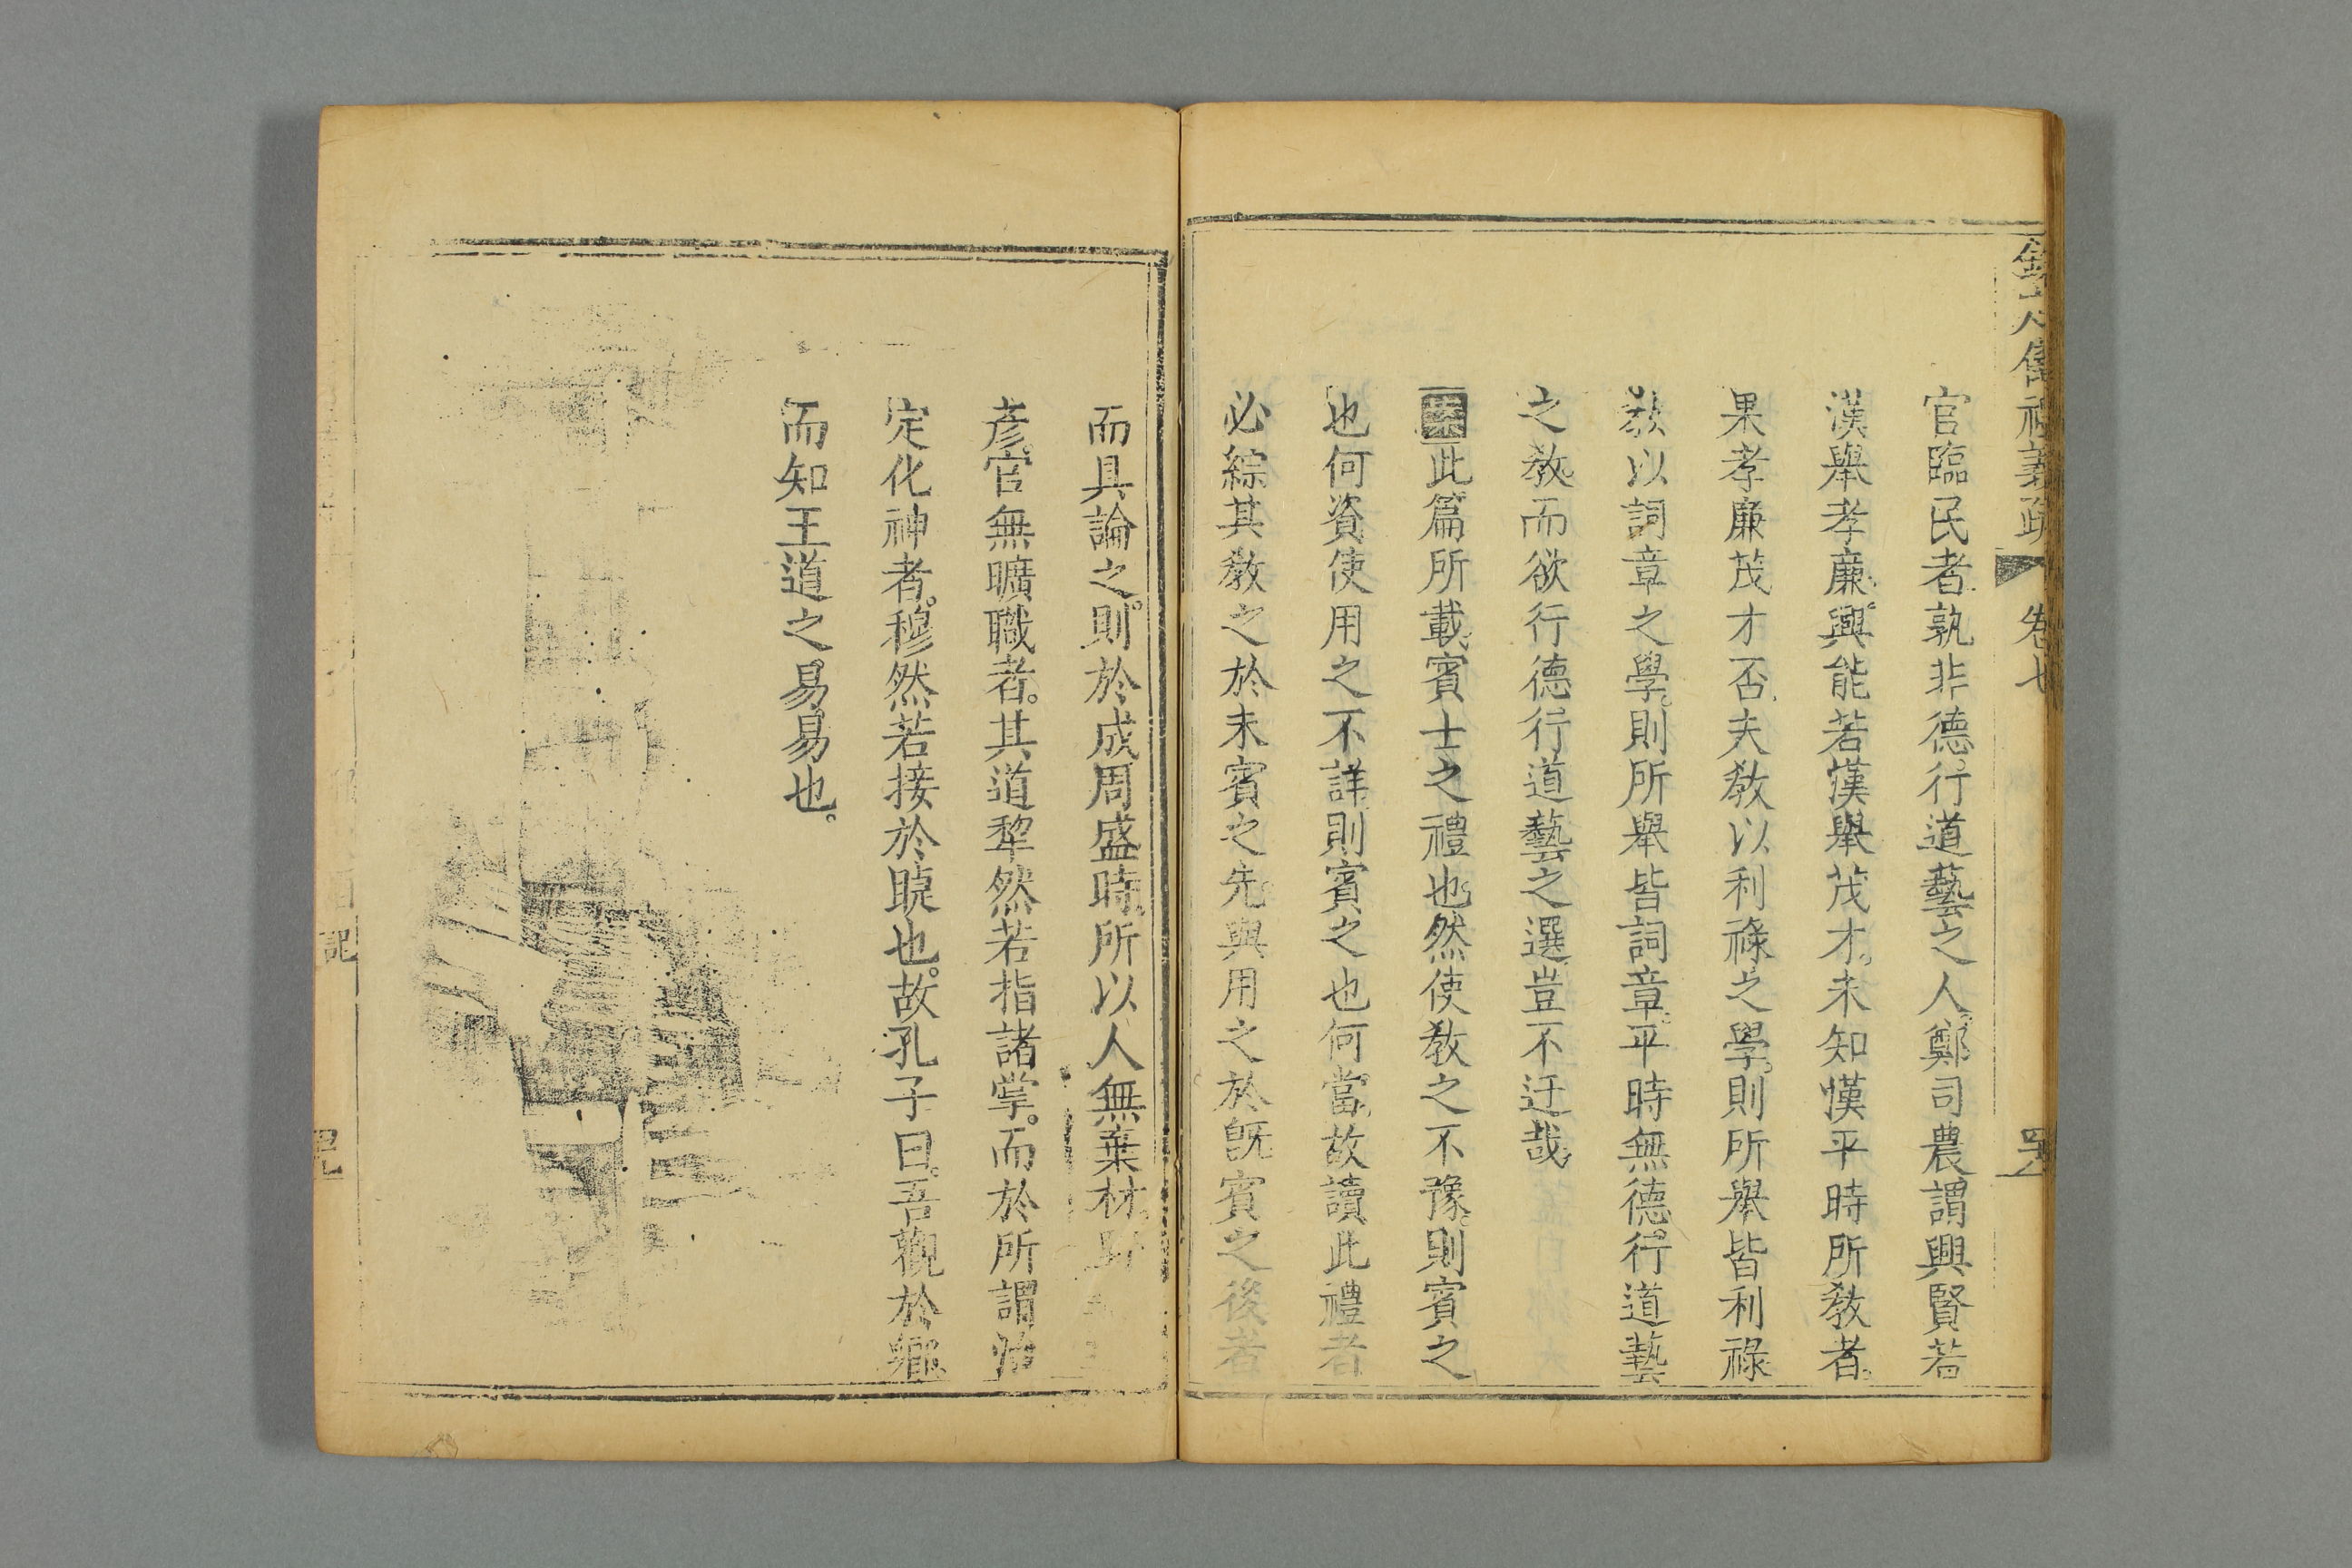 儀禮義疏 卷七
官臨民者孰非德行道藝之人鄭司農謂興賢若
漢舉孝廉興能若漢舉茂才未知漢平時所教者
果孝廉茂才否夫教以利祿之學則所舉皆利祿
教以詞章之學則所舉皆詞章平時無德行道藝
之教而欲行德行道藝之選豈不迂哉
案此篇所載賓士之禮也然使教之不豫則賓之
也何資使用之不詳則賓之也何當故讀此禮者
必綜其教之於未賓之先與用之於既賓之後者
而具論之則於成周盛時所以人無棄材野
彥官無曠職者其道犂然若指諸掌而於所謂治
定化神者穆然若接於睫也故孔子曰吾觀於鄉
而知王道之易易也
記